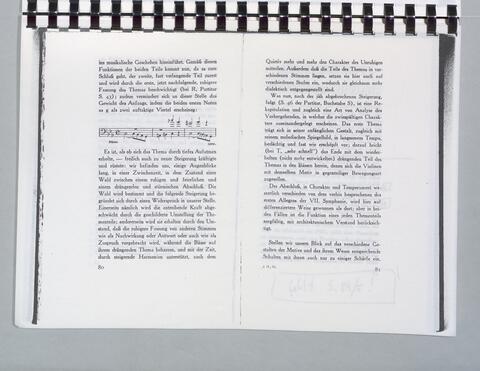 ins musikalische Geschehen hineinführt. Gemäß diesen
Funktionen der beiden Teile kommt nun, da es zum
Schluß geht, der zweite, fast verlangende Teil zuerst
und wird durch die erste, jetzt nachfolgende, ruhigere
Fassung des Themas beschwichtigt (bei R, Partitur
S. 43); zudem vermindert sich an dieser Stelle das
Gewicht des Anfangs, indem die beiden ersten Noten
es g als zwei auftaktige Viertel erscheinen:
Es ist, als ob sich das Thema durch tiefes Aufatmen
erholte, — freilich auch zu neuer Steigerung kräftige
und rüstete: wir befinden uns, einige Augenblicke
lang, in einer Zwischenzeit, in dem Zustand einer
Wahl zwischen einem ruhigen und feierlichen und
einem drängenden und stürmischen Abschluß. Die
Wahl wird bestimmt und die folgende Steigerung be-
reichert durch einen Widerspruch in unserer Stelle.
Einerseits nämlich wird die eintreibende Kraft abge-
schwächt durch die geschilderte Umstellung der The-
menteile; andererseits wird sie erhalten durch den Um-
stand, daß die ruhigere Fassung von anderen Stimmen
wie als Nachwirkung oder Antwort oder auch wie als
Zuspruch vorgebracht wird, während die Bläser auf
ihrem drängenden Thema beharren, und mit der Zeit,
durch steigende Harmonien unterstützt, nach dem
80
Quintis mehr und mehr den Charakter des Unruhigen
mitteilen. Außerdem daß die Teile des Themas in ver-
schiedenen Stimmen liegen, setzen sie hier auch auf
verschiedenen Stufen ein, wodurch sie gleichsam mehr
dialektisch entgegengestellt sind.
Was nun, nach der jäh abgebrochenen Steigerung,
folgt (S. 46 der Partitur, Buchstabe S), ist eine Re-
kapitulation und zugleich eine Art von Analyse des
Vorhergehenden, in welcher die zwiespältigen Charak-
tere auseinandergelegt erscheinen. Das erste Thema
trägt sich in seiner anfänglichen Gestalt, zugleich mit
seinem melodischen Spiegelbild, in langsamem Tempo,
bedächtig und fast wie erschöpft vor; darauf bricht
(bei T, „sehr schnell") das Ende mit dem wieder-
holten (nicht mehr entwickelten) drängenden Teil des
Themas in den Bläsern herein, dem sich die Violinen
mit demselben Motiv in gegenteiliger Bewegungsart
zugesellen.
Der Abschluß, in Charakter und Temperament we-
sentlich verschieden von dem vorhin besprochenen des
ersten Allegros der VII. Symphonie, wird hier auf
differenziertere Weise gewonnen als dort; aber in bei-
den Fällen ist die Funktion eines jeden Thementeils
sorgfältig, mit architektonischem Verstand berücksich-
tigt.
Stellen wir unsern Blick auf das verschiedene Ge-
stalten der Motive und das ihrem Wesen entsprechende
Schalten mit ihnen auch nur zu einiger Schärfe ein,
81